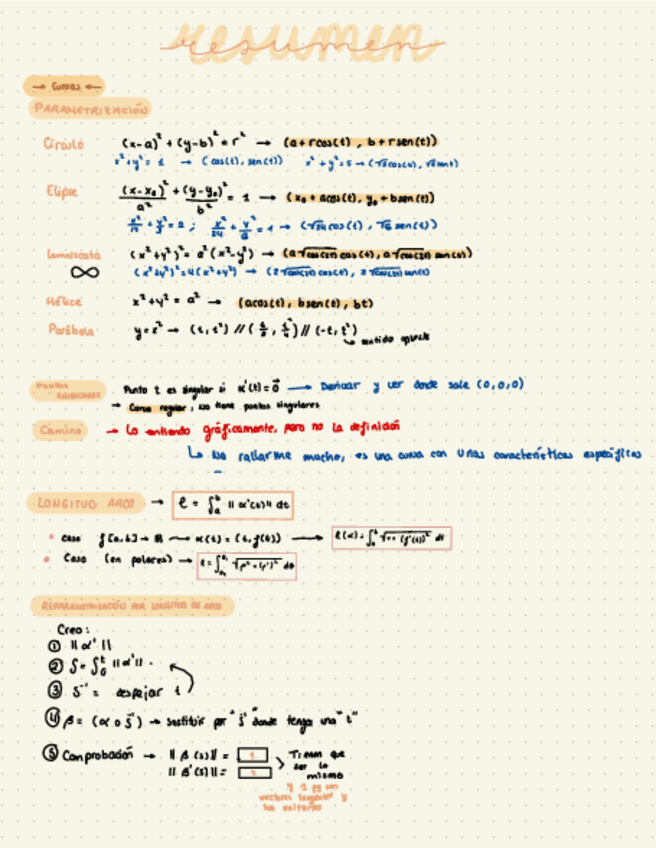 resumen
→ Curvas ←
PARAMETRIZACIÓN
Círculo (x-a)² + (y-b)² = r² → (a+rcos(t), b+rsen(t))
x²+y²=1 → (cos(t), sen(t)) x²+y²=5 → (√5cos(t), √5sen(t))
Elipse (x-x₀)²/a² + (y-y₀)²/b² = 1 → (x₀+acos(t), y₀+bsen(t))
x²/24 + y²/6 = 1 → (√24cos(t), √6sen(t))
Lemniscata (x²+y²)² = a²(x²-y²) → (a√cos(2t) cos(t), a√cos(2t) sen(t))
∞
Hélice x²+y² = a² → (acos(t), bsen(t), bt)
Parábola y=x² → (t, t²) // (t/2, t²/4) // (-t, t²)
↳ sentido opuesto
PUNTOS SINGULARES Punto t es singular si α'(t)=0⃗ → Derivar y ver donde sale (0,0,0)
→ Curva regular, no tiene puntos singulares
Camino → Lo entiendo gráficamente, pero no la definición
↳ No rallarme mucho, es una curva con unas características específicas
LONGITUD ARCO → ℓ = ∫ₐᵇ ||α'(t)|| dt
• caso f[a,b] → ℝ α(t) = (t, f(t)) → ℓ(α) = ∫ₐᵇ √1+(f'(t))² dt
• Caso (en polares) →
REPARAMETRIZACIÓN POR LONGITUD DE ARCO
Creo:
① ||α'||
② S = ∫₀ᵗ ||α'||
③ S⁻¹ = despejar t
④ β = (α o S⁻¹) → sustituir por "s" donde tenga una "t"
⑤ Comprobación → ||β'(s)|| = 1
||β'(s)|| = 1
Tienen que
ser lo
mismo
y 1 pq son
vectores tangentes y
los unitarios